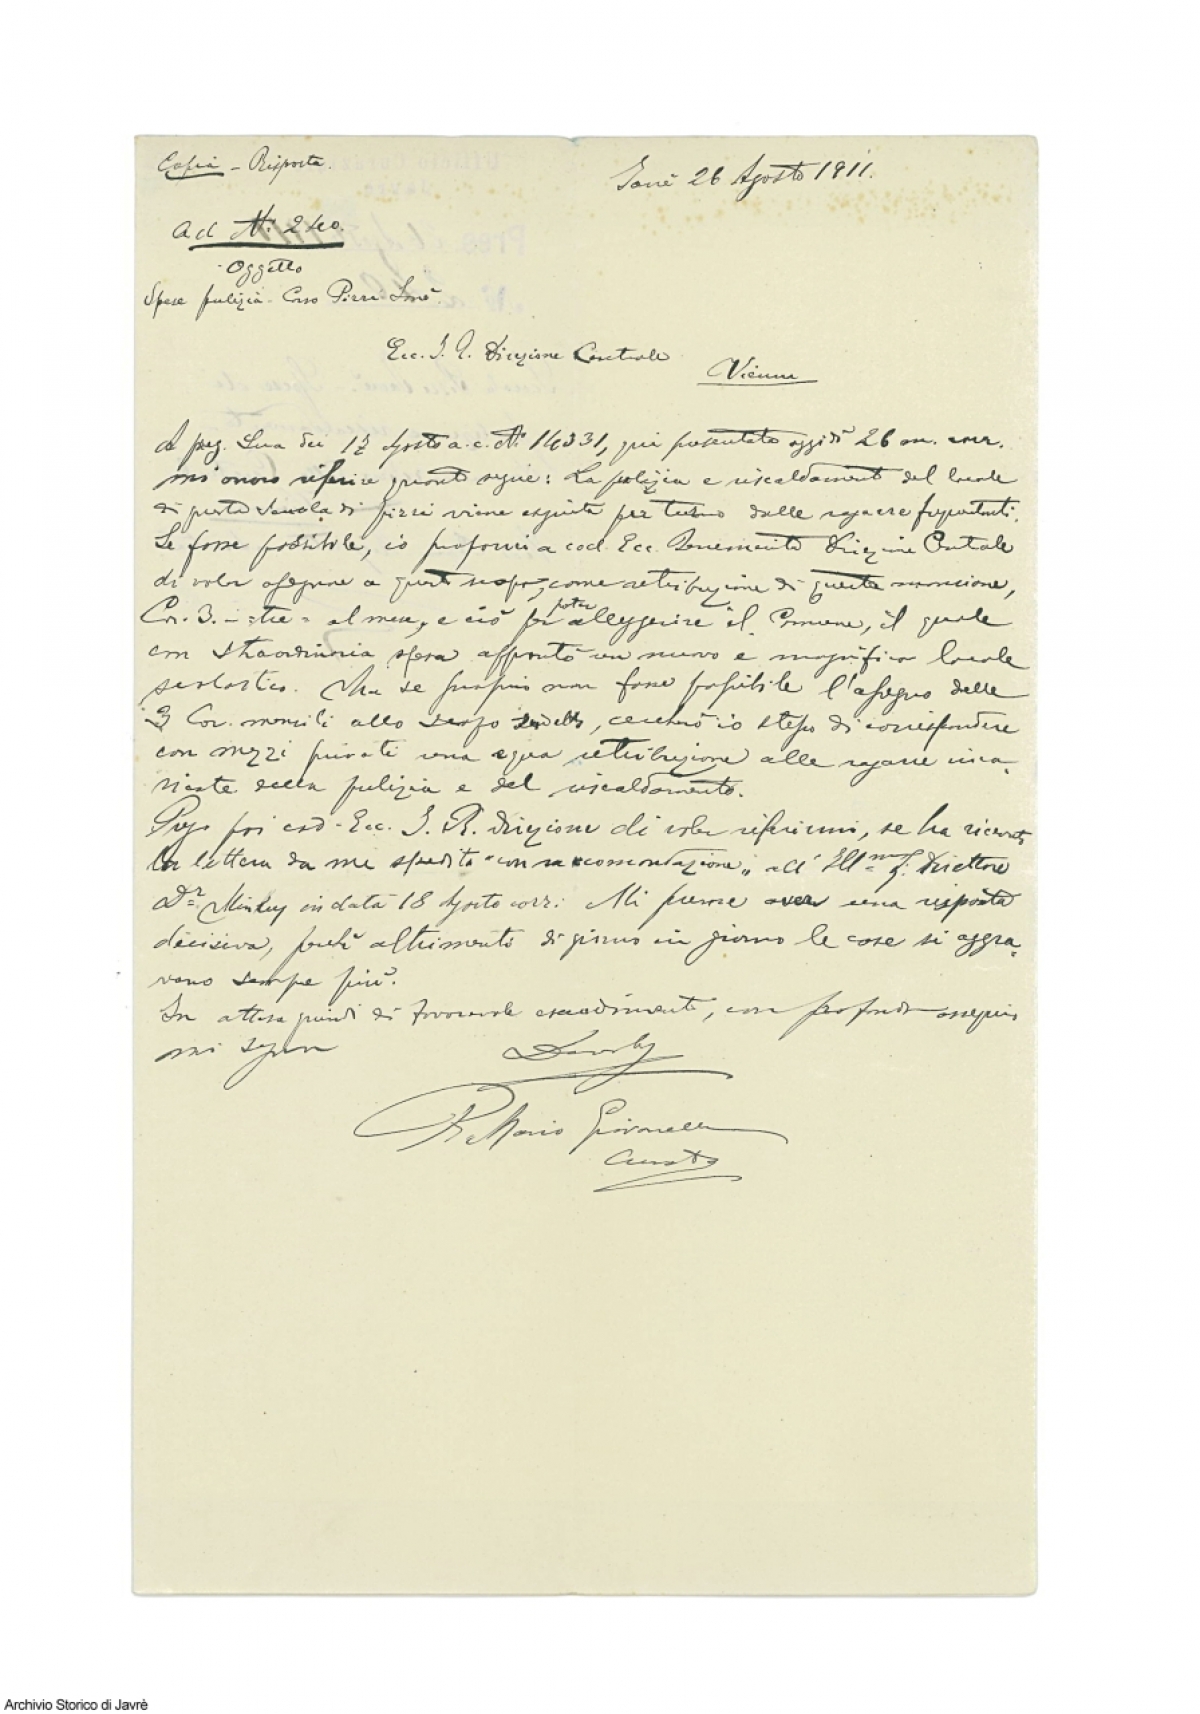 Copia - Risposta.
Javrè 26 Agosto 1911.
Ad N: 240.
Oggetto
Spese pulizia - Corso Pizzi Javrè.
Ecc. I. R. Direzione Centrale
Vienna
A preg. Sua dei 17 Agosto a. c. N: 14331, qui presentata oggidì 26 m. corr.
mi onoro riferire quanto segue: La pulizia e riscaldamento del locale
di questa Scuola di pizzi viene eseguita per turno dalle ragazze frequentanti.
Se fosse possibile, io proporrei a cod. Ecc. Benemerita Direzione Centrale
di voler assegnare a questo scopo, come retribuzione di questa mansione,
Cor. 3. - tre - al mese, e ciò per poter alleggerire il Comune, il quale
con straordinaria spesa approntò un nuovo e magnifico locale
scolastico. Ma se proprio non fosse possibile l'assegno delle
3 Cor. mensili allo scopo suddetto, cercherò io stesso di corrispondere
con mezzi privati una equa retribuzione alle ragazze inca-
ricate della pulizia e del riscaldamento.
Prego poi cod. Ecc. I. R. Direzione di voler riferirmi, se ha ricevuto
la lettera da me spedita "con raccomandazione" all' Ill.mo S. Direttore
Dr. in data 18 Agosto corr. Mi preme aver una risposta
decisiva, perchè altrimenti di giorno in giorno le cose si aggra-
vano sempre più.
In attesa quindi di favorevole esaudimento, con profondo ossequio
mi segno
P. Mario Giovanella
Curato
Archivio Storico di Javrè